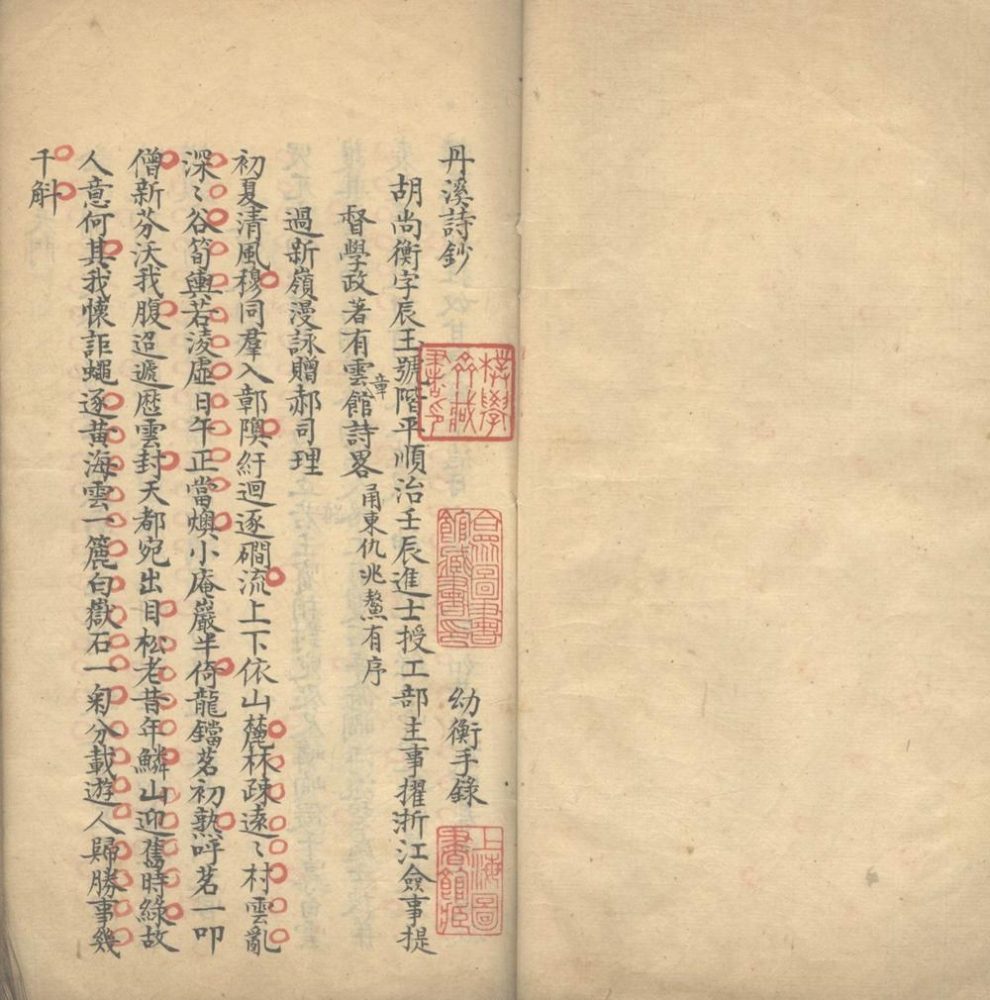 丹溪詩鈔
幼衡手錄
胡尚衡字辰王號階平順治壬辰進士授工部主事擢浙江僉事提
督學政著有雲章館詩畧甬東仇兆鰲有序
過新嶺漫詠贈郝司理
初夏清風穆同羣入鄣隩紆迴逐磵流上下依山麓林疎遠〻村雲亂
深〻谷筍輿若淩虛日午正當燠小庵巖半倚龍鐺茗初熟呼茗一叩
僧新芬沃我腹迢遞歷雲封天都宛出目松老昔年鱗山迎舊時綠故
人意何其我懷詎蠅逐黃海雲一簏白嶽石一匊分載遊人歸勝事幾
千斛
樸學齋藏書印
合圖書館藏書印
上海圖書館藏